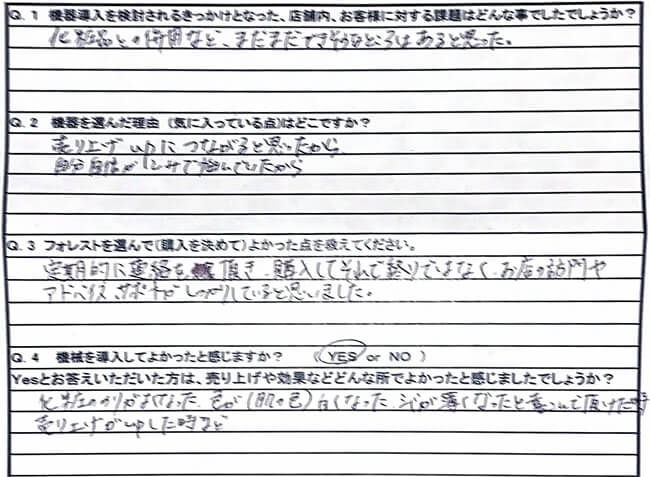 Q. 1 機器導入を検討されるきっかけとなった、店舗内、お客様に対する課題はどんな事でしたでしょうか？
化粧品との併用など、まだまだできそうなところはあると思った。
Q. 2 機器を選んだ理由（気に入っている点)はどこですか？
売り上げupにつながると思ったから
自分自身がシミで悩んでいたから
Q. 3 フォレストを選んで(購入を決めて)よかった点を教えてください。
定期的に連絡を頂き、購入してそれで終りではなく、お店の訪問や
アドバイス、サポートがしっかりしていると思いました。
Q. 4 機械を導入してよかったと感じますか？ （ YES or NO ）
Yesとお答えいただいた方は、売り上げや効果などどんな所でよかったと感じましたでしょうか？
化粧ののりがよくなった、色が（肌の色）白くなった、シミが薄くなったと喜んで頂けた時
売り上げがupした時など